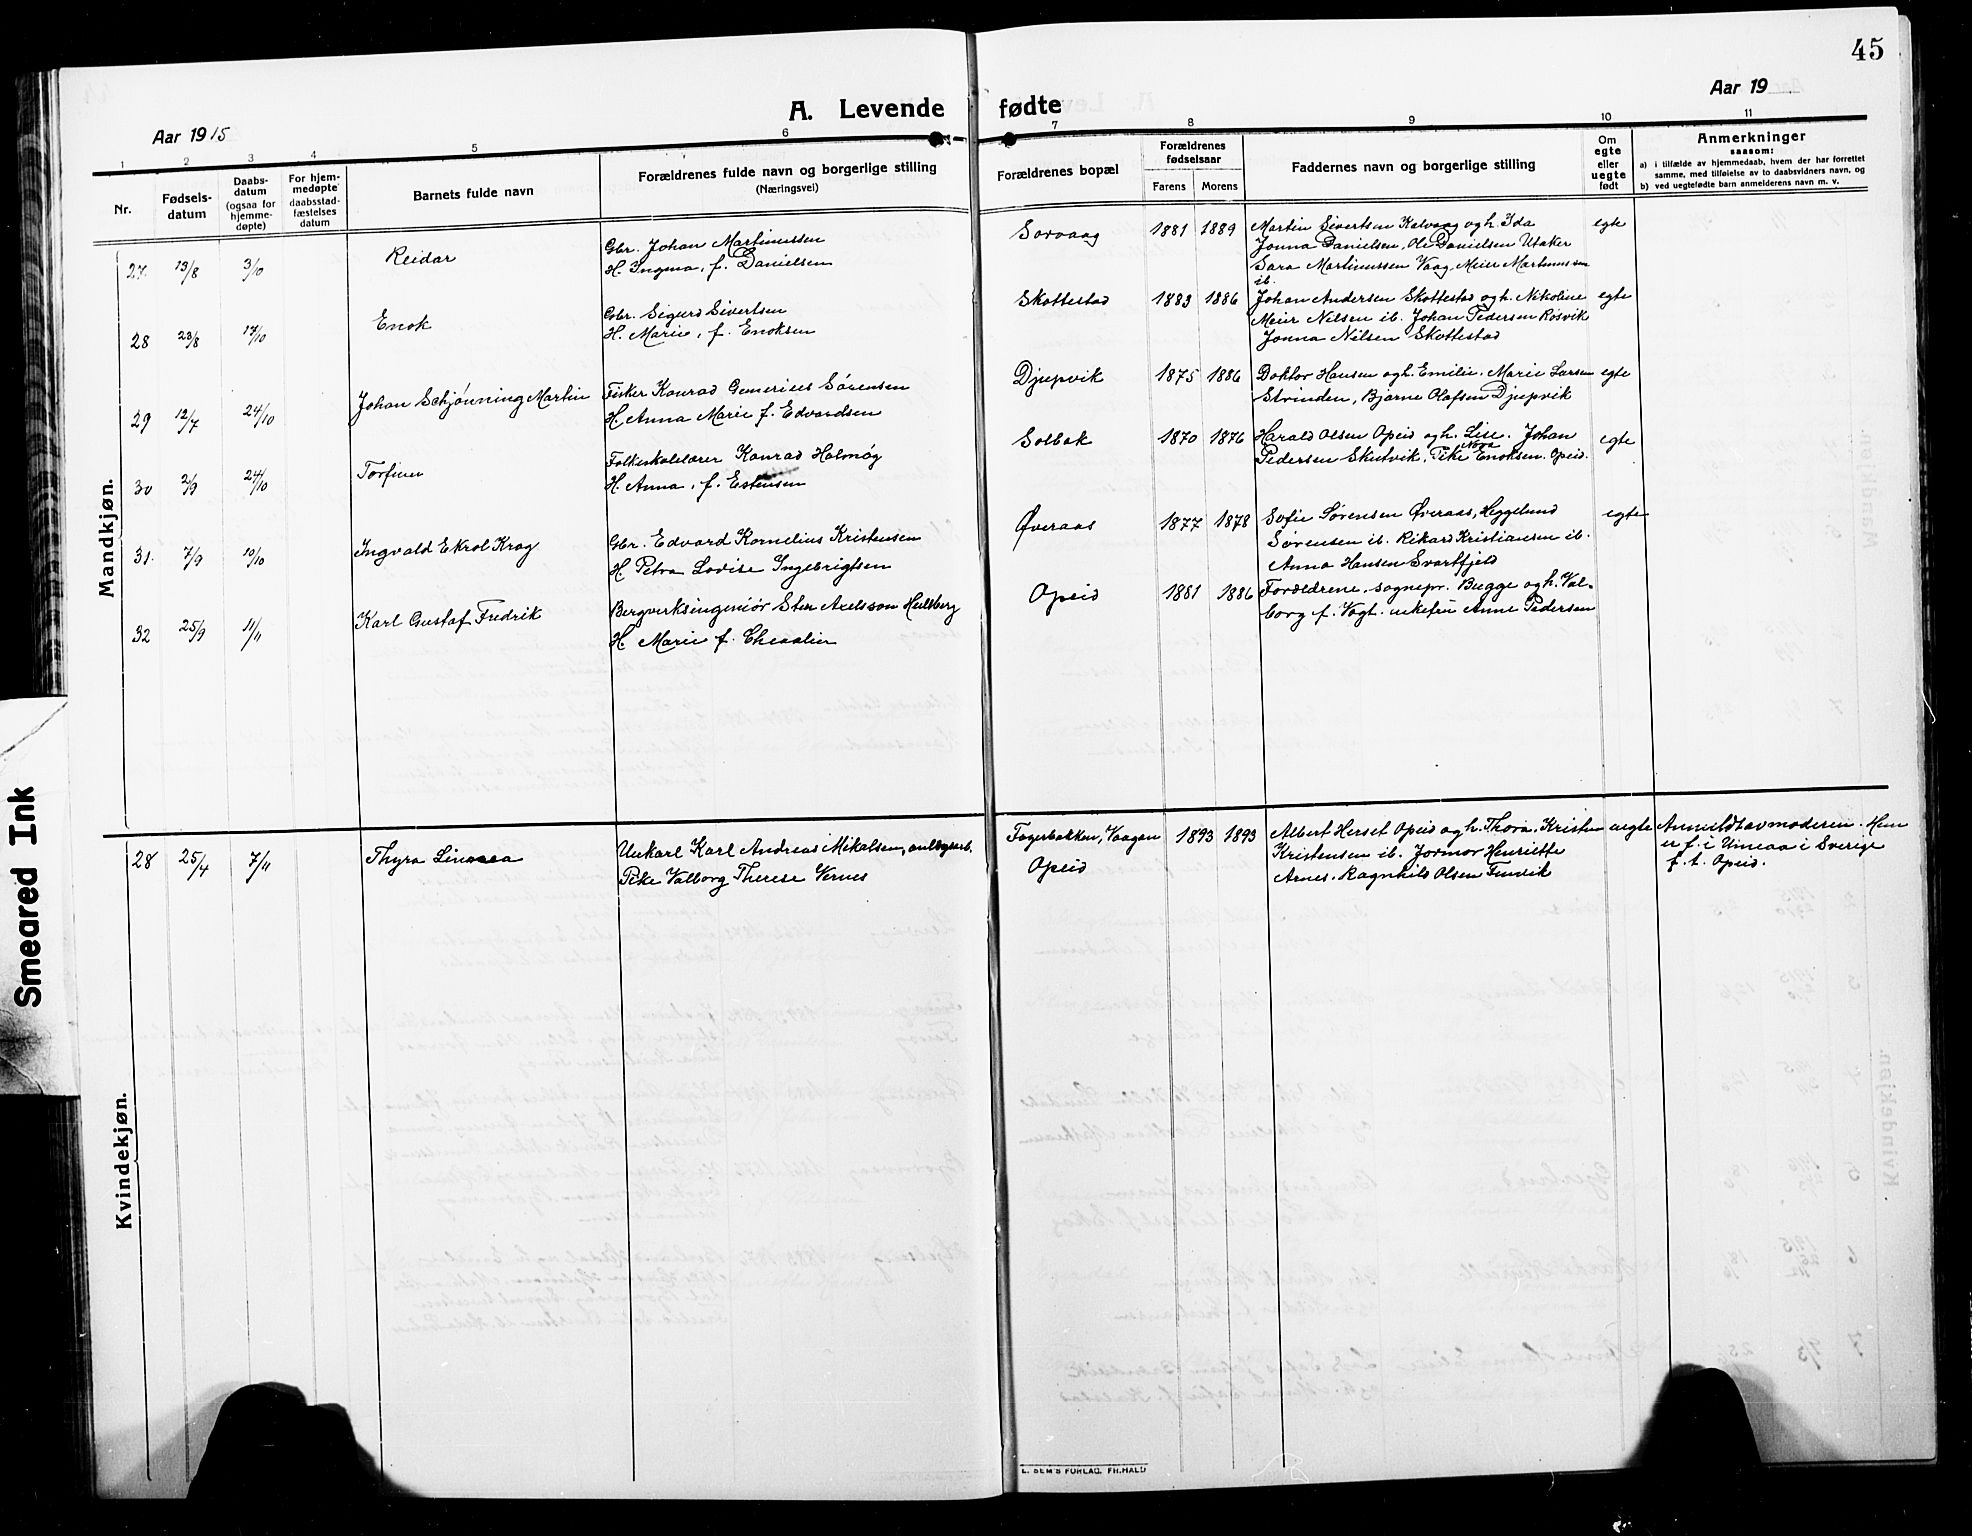 45
A. Levende fødte
Aar 1915
Aar 19
1 2 3 4 5 6 7 8 9 10 11
Nr.
Fødsels-
datum
Daabs-
datum
(ogsaa for
hjemme-
døpte)
For hjem-
medøpte
daabsstad-
fæstelses
datum
Barnets fulde navn
Forældrenes fulde navn og borgerlige stilling
(Næringsvei)
Forældrenes bopæl
Forældrenes
fødselsaar
Farens Morens
Faddernes navn og borgerlige stilling
Om
egte
eller
uegte
født
Anmerkninger
saasom:
a) i tilfælde av hjemmedaab, hvem der har forrettet
samme, med tilføielse av to daabsvidners navn, og
b) ved uegtefødte barn anmelderens navn m. v.
Mandkjøn.
27 13/8 3/10 Reidar
Gbr. Johan Martinussen
H. Ingma, f. Danielsen
Sørvaag 1881 1889
Martin Sivertsen Kalvaag og h. Ida
Jonna Danielsen, Ole Danielsen Utaker
Sara Martinussen Vaag, Meier Martinussen
ib.
egte
28 23/8 17/10 Enok
Gbr. Sigurd Sivertsen
H. Marie, f. Enoksen
Skottestad 1883 1886
Johan Andersen Skottestad og h. Nikoline
Meier Nilsen ib. Johan Pedersen Røsvik
Jonna Nilsen Skottestad
egte
29 12/7 24/10 Johan Schjønning Martin
Fisker Konrad Gemerius Sørensen
H. Anna Marie f. Edvardsen
Djupvik 1875 1886
Doktor Hansen og h. Emilie. Marie Larsen
Strinden, Bjarne Olafsen Djupvik
egte
30 2/9 24/10 Torfinn
Folkeskolelærer Konrad Holmøg
H. Anna, f. Estensen
Solbak 1870 1876
Harald Olsen Opeid og h. Lise. Johan
Pedersen Skutvik, Pike Nora Enoksen. Opeid.
egte
31. 7/9 10/10 Ingvald Ekrol Krog
Gbr. Edvard Kornelius Kristensen
H. Petra Lovise Ingebrigtsen
Øveraas 1877 1878
Sofie Sørensen Øveraas, Heggelund
Sørensen ib. Rikard Kristiansen ib.
Anna Hansen Svartfjeld
egte
32 25/9 11/11 Karl Gustaf Fredrik
Bergverksingeniør Sten Axelsson
H. Marie f.
Opeid 1881 1886
Forældrene, sognepr. Bugge og h. Val-
borg f. Vogt. Anne Pedersen
Kvindekjøn.
28 25/4 7/11 Thyra Linnea
Unkarl Karl Andreas Mikalsen, anlegsarb.
Pike Valborg Therese Vernes
Fagerbakken, Vaagan
Opeid
1893 1893
Albert Herset Opeid og h. Thora. Kristen
Kristensen ib. Jormor Henriette
Arnes. Ragnhild Olsen
uegte
Anmeldt av moderen. Hun
er f. i Umeaa i Sverige
f. t. Opeid.
E. SEM'S FORLAG. FR.HALD
Smeared Ink